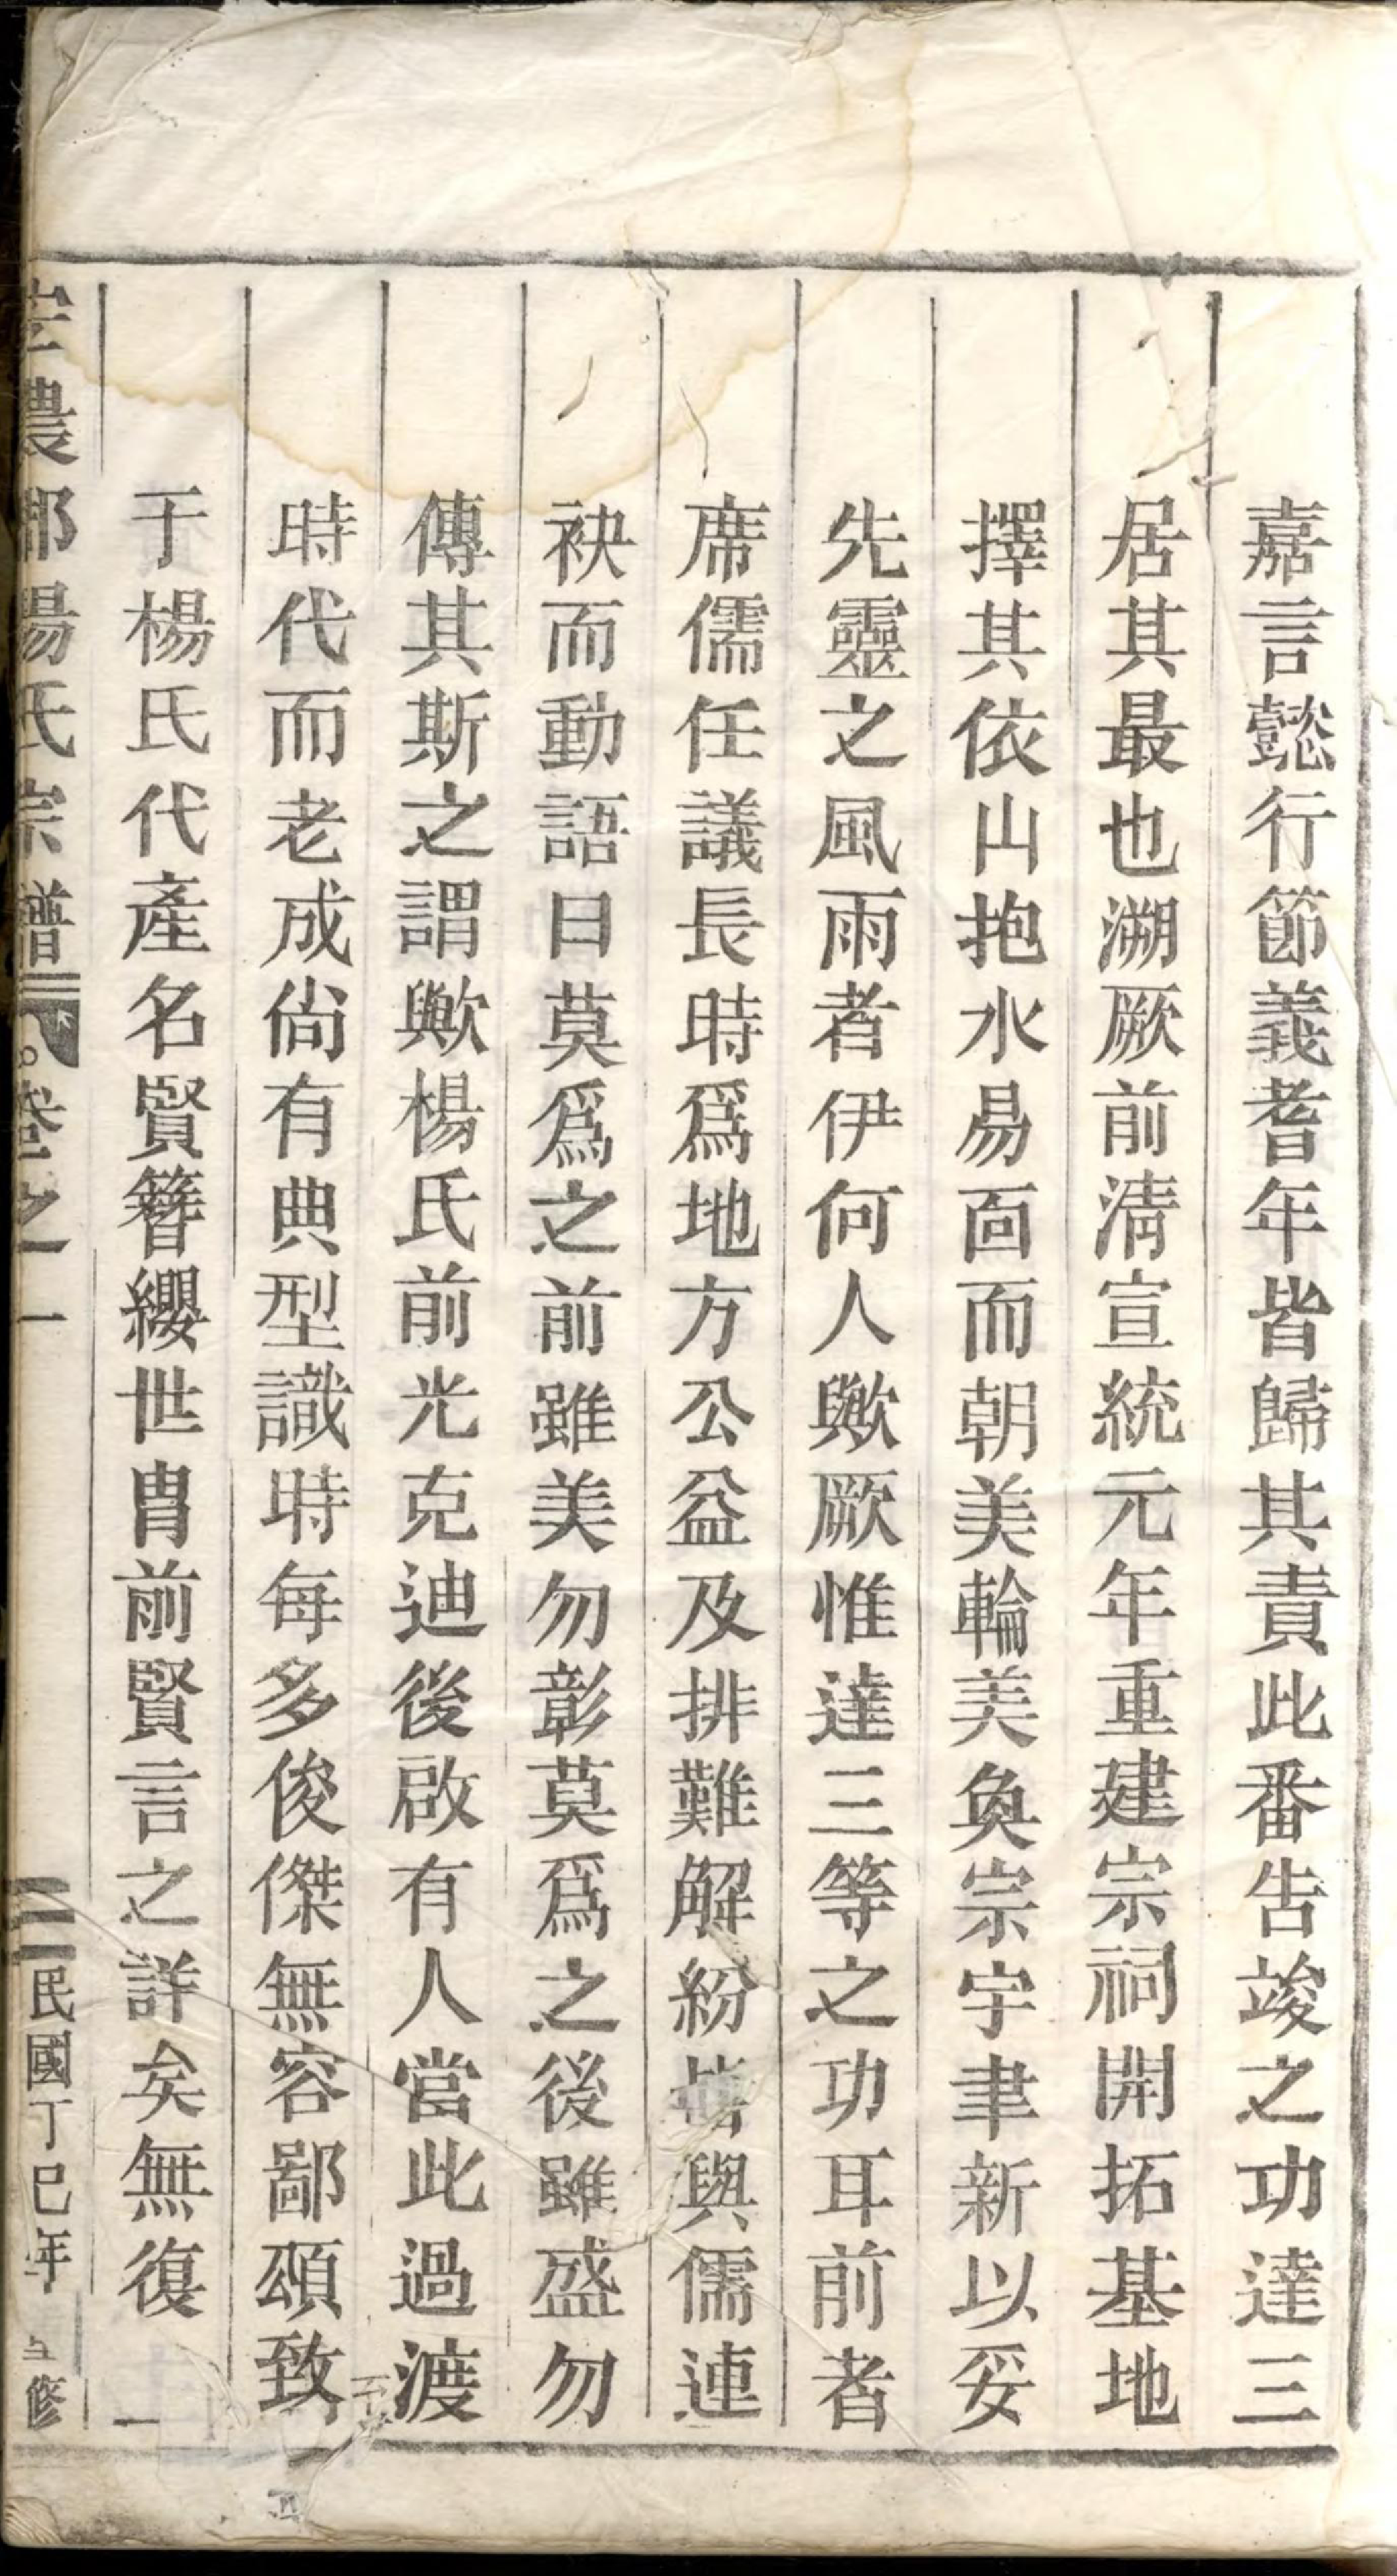 嘉言懿行節義耆年皆歸其責此番告竣之功達三
居其最也溯厥前清宣統元年重建宗祠開拓基地
擇其依山抱水易面而朝美輪美奐宗宇聿新以妥
先靈之風雨者伊何人歟厥惟達三等之功耳前者
席儒任議長時爲地方公益及排難解紛皆與儒連
袂而動語曰莫爲之前雖美勿彰莫爲之後雖盛勿
傳其斯之謂歟楊氏前光克迪後啟有人當此過渡
時代而老成尚有典型識時每多俊傑無容鄙頌致
于楊氏代產名賢簪纓世胄前賢言之詳矣無復一
農郡楊氏宗譜 卷之一 民國丁巳年 修